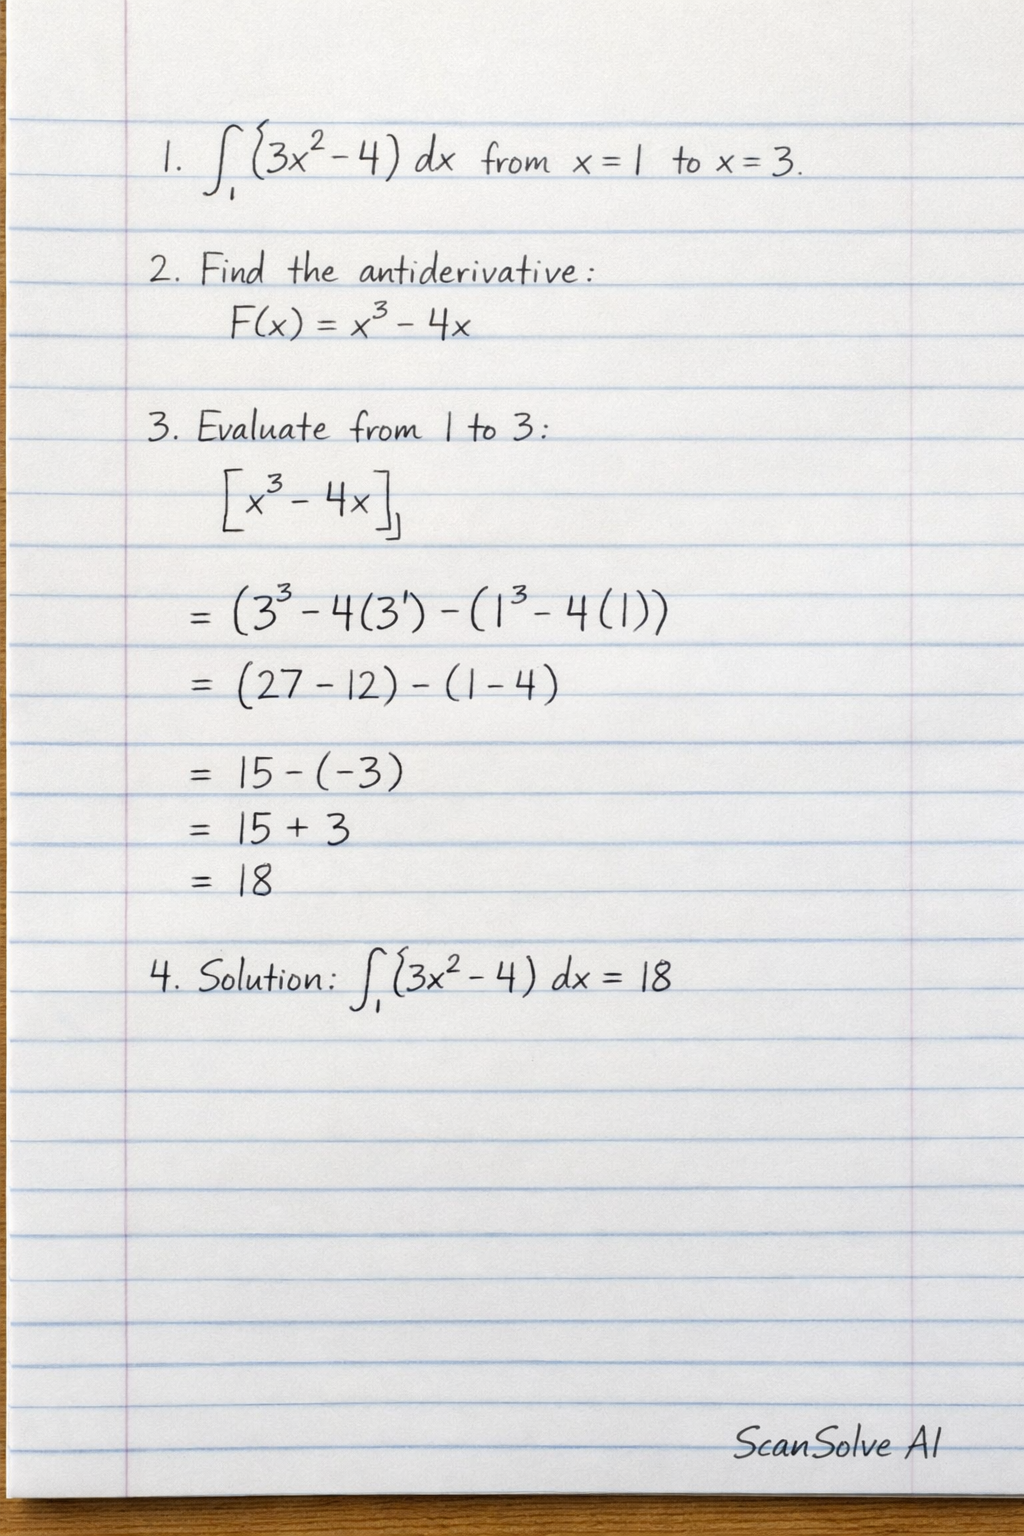 1. ∫₁ (3x² - 4) dx from x = 1 to x = 3.
2. Find the antiderivative:
F(x) = x³ - 4x
3. Evaluate from 1 to 3:
[x³ - 4x]₁
= (3³ - 4(3') - (1³ - 4(1))
= (27 - 12) - (1 - 4)
= 15 - (-3)
= 15 + 3
= 18
4. Solution: ∫₁ (3x² - 4) dx = 18
ScanSolve AI